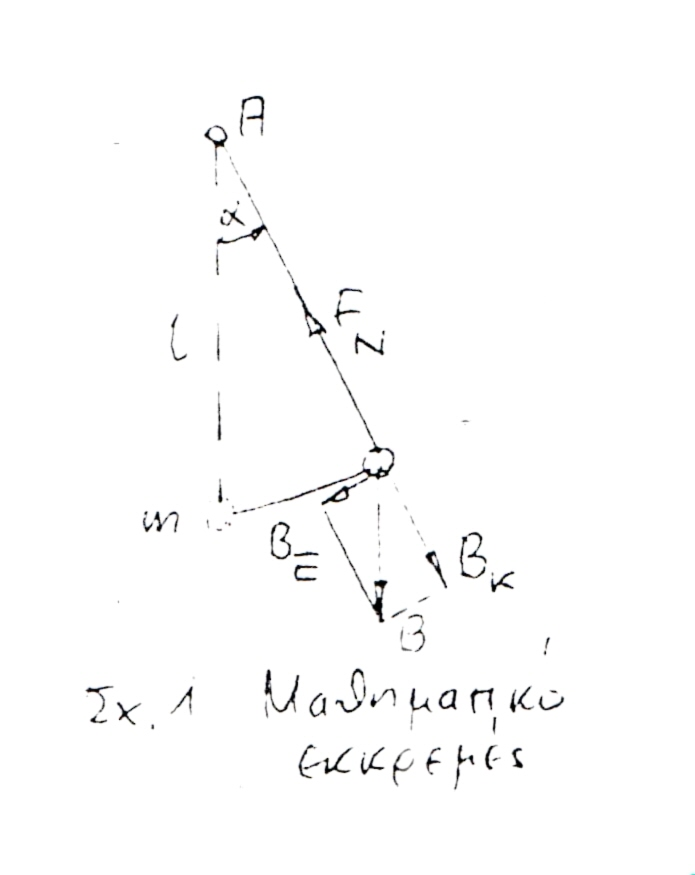 A
α
F
N
l
m
B
B
κ
B
Σχ. 1 Μαθηματικό
εκκρεμές